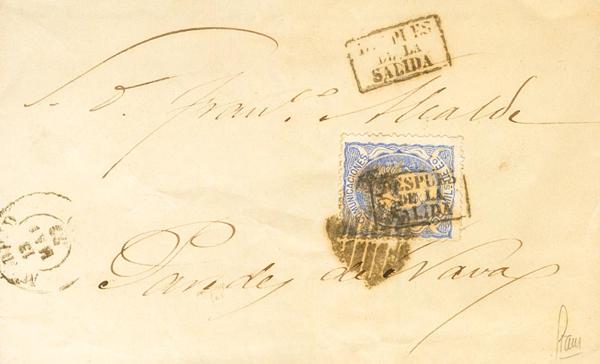 DESPUES
DE LA
SALIDA
S. D. Franco. Alcalde
COMUNICACIONES
MIL. DE Eo.
DESPUES
DE LA
SALIDA
Paredes de Nava